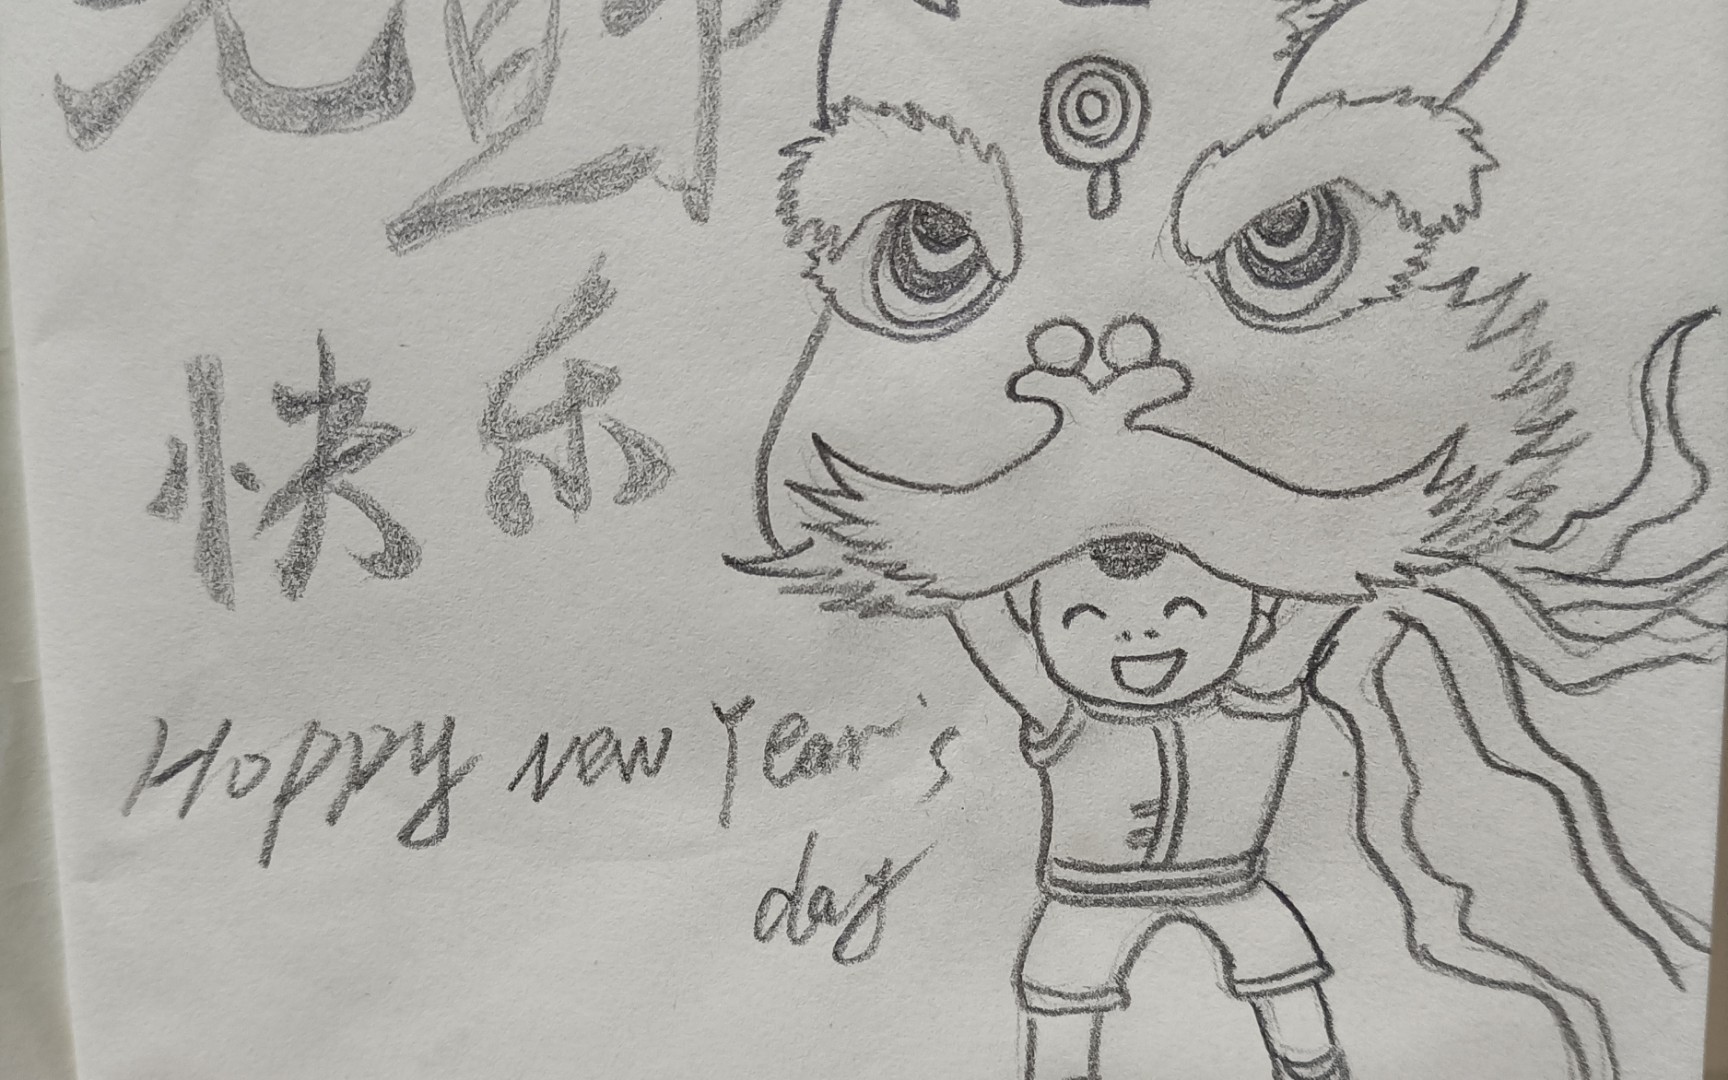 元旦节
快乐
Happy new Year's
day